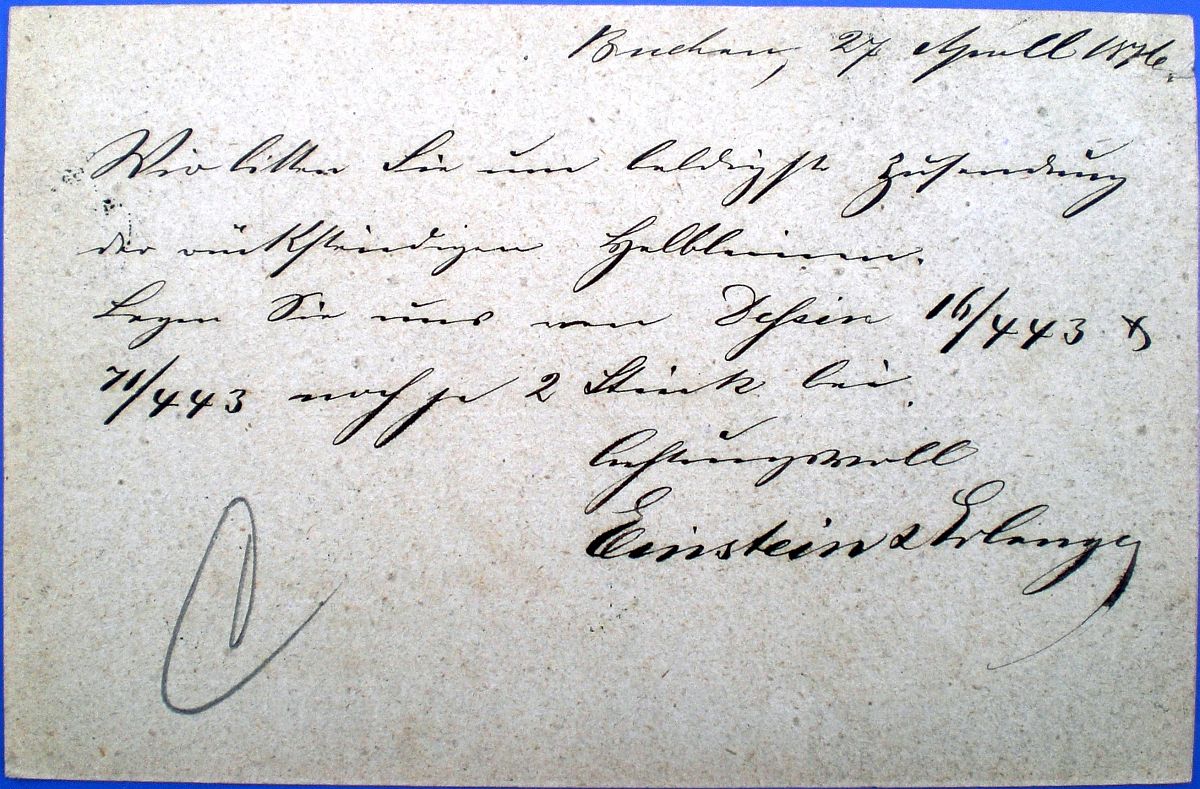 Buchau, 27 April 1876.
Wir bitten Sie um baldigste Zusendung
der rückständigen Halbleinen.
Legen Sie uns von Dessin 16/443 &
71/443 noch je 2 Stück bei.
Achtungsvoll
Einstein & Erlanger